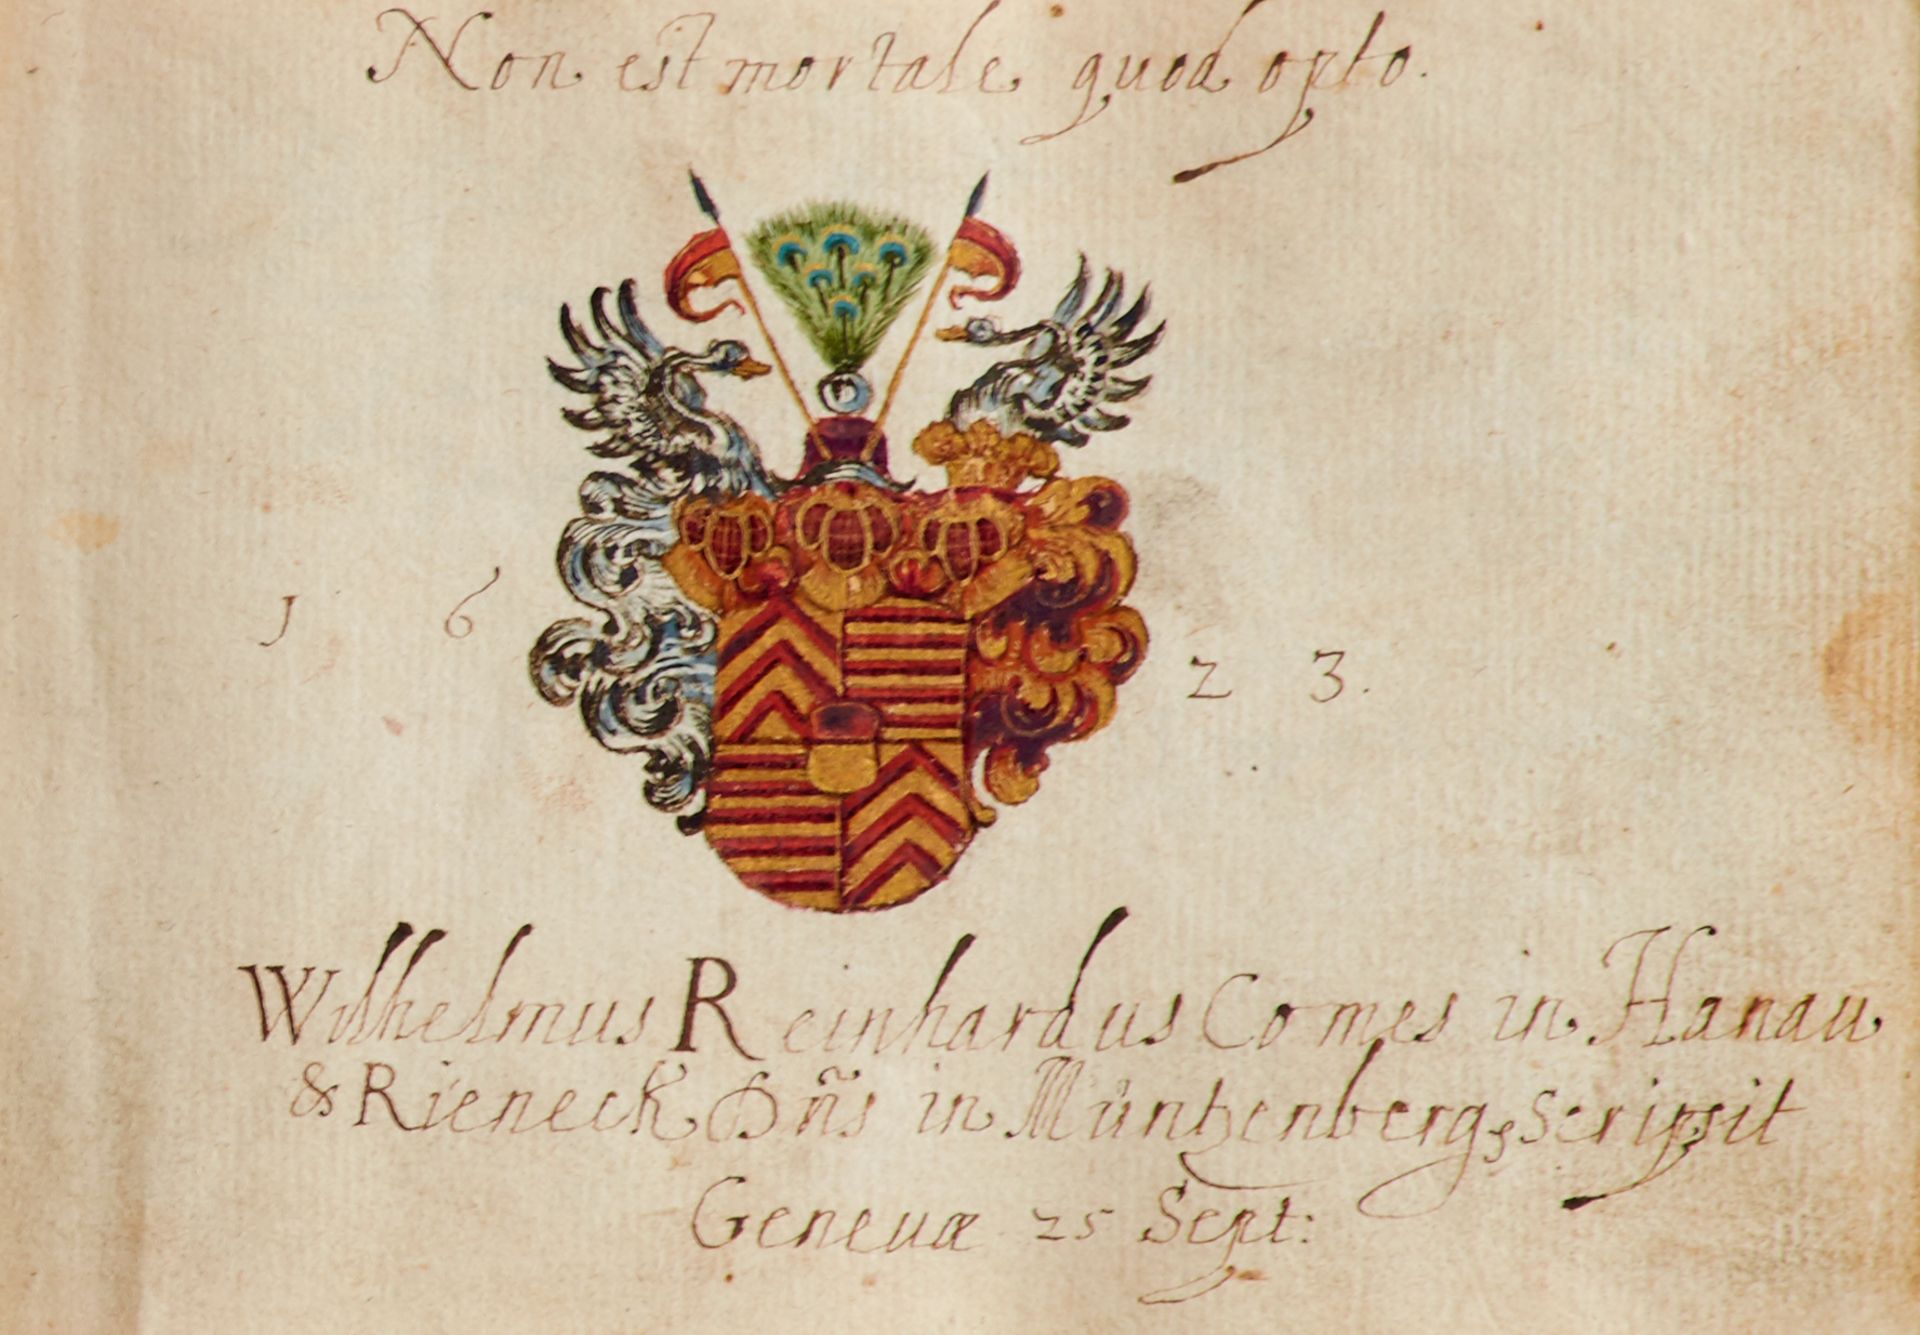 Non est mortale quod opto.
1 6 2 3.
Wilhelmus Reinhardus Comes in Hanau
& Rieneck Dñs in Müntzenberg, scripsit
Genevæ 25 Sept: